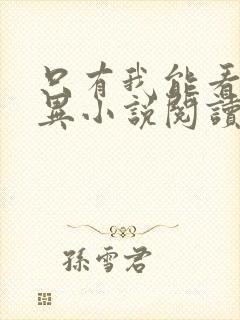 只有我能看
異小說閱讀
孫雪君